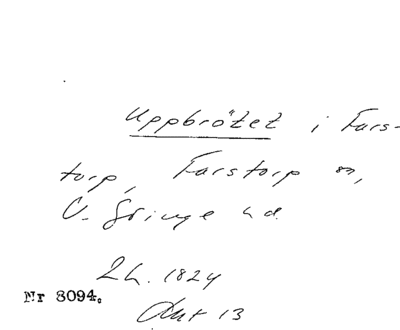 Uppbrötet i Fars-
torp, Farstorp sn,
V. Göinge hd.
Lh. 1824
Nr 8094.
Akt 13